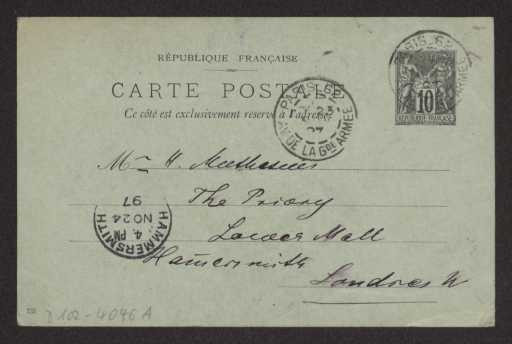 RÉPUBLIQUE FRANÇAISE
CARTE POSTALE
Ce côté est exclusivement réservé à l'adresse.
PARIS 68
10
RÉPUBLIQUE FRANÇAISE
PARIS 68
23
97
AV. DE LA Gde ARMÉE
Mr H.
The Priory
Lower Mall
Hammersmith
Londres W
HAMMERSMITH
4. PM
NO 24
97
D 102-4046 A